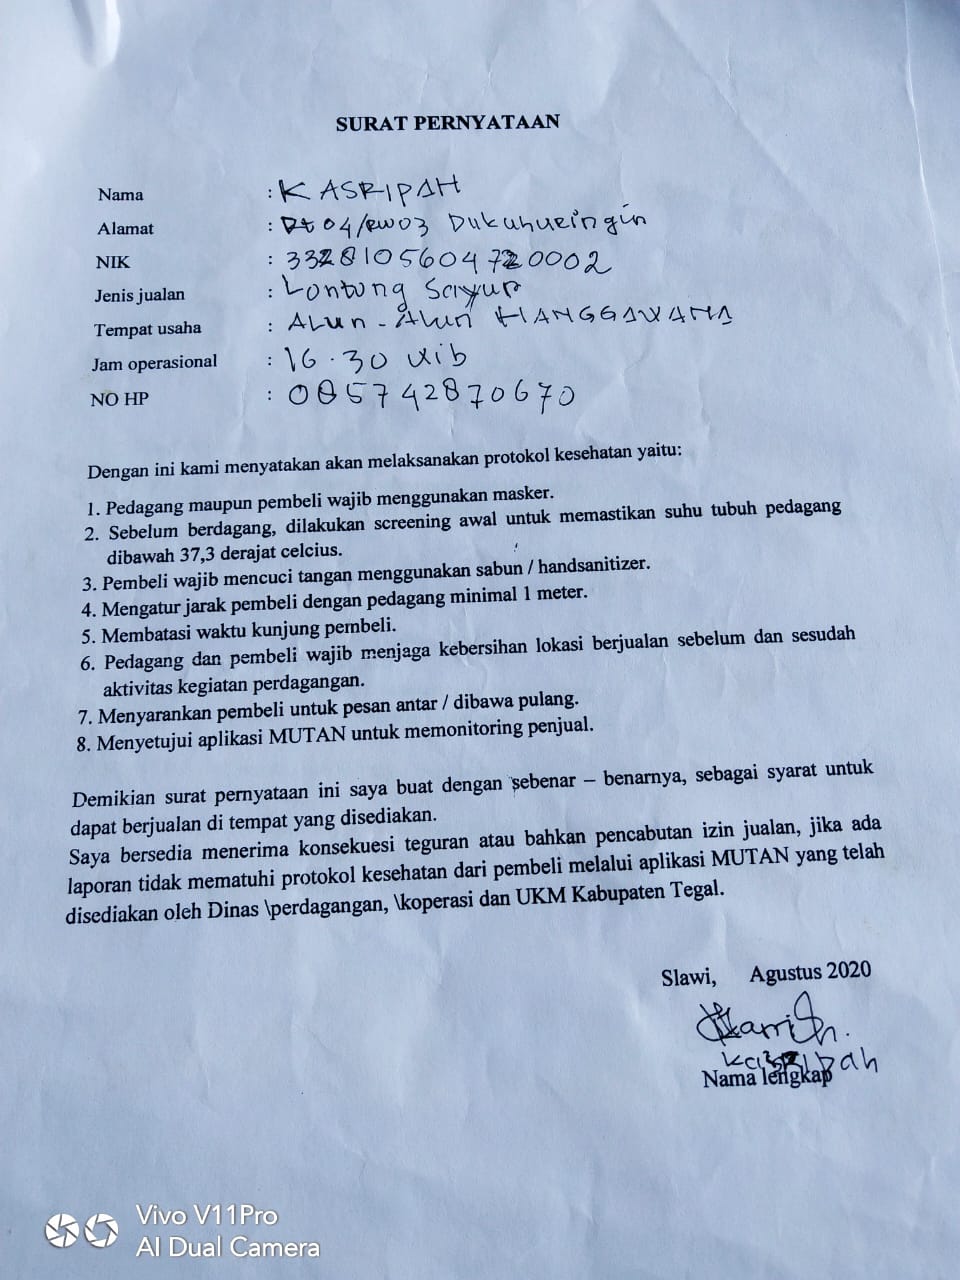 SURAT PERNYATAAN
Nama : KASRIPAH
Alamat : Rt 04/RW03 Dukuhwringin
NIK : 3328105604720002
Jenis jualan : Lontong Sayur
Tempat usaha : ALun - ALun HANGGAWANA
Jam operasional : 16.30 wib
NO HP : 085742870670
Dengan ini kami menyatakan akan melaksanakan protokol kesehatan yaitu:
1. Pedagang maupun pembeli wajib menggunakan masker.
2. Sebelum berdagang, dilakukan screening awal untuk memastikan suhu tubuh pedagang
dibawah 37,3 derajat celcius.
3. Pembeli wajib mencuci tangan menggunakan sabun / handsanitizer.
4. Mengatur jarak pembeli dengan pedagang minimal 1 meter.
5. Membatasi waktu kunjung pembeli.
6. Pedagang dan pembeli wajib menjaga kebersihan lokasi berjualan sebelum dan sesudah
aktivitas kegiatan perdagangan.
7. Menyarankan pembeli untuk pesan antar / dibawa pulang.
8. Menyetujui aplikasi MUTAN untuk memonitoring penjual.
Demikian surat pernyataan ini saya buat dengan sebenar – benarnya, sebagai syarat untuk
dapat berjualan di tempat yang disediakan.
Saya bersedia menerima konsekuesi teguran atau bahkan pencabutan izin jualan, jika ada
laporan tidak mematuhi protokol kesehatan dari pembeli melalui aplikasi MUTAN yang telah
disediakan oleh Dinas \perdagangan, \koperasi dan UKM Kabupaten Tegal.
Slawi, Agustus 2020
Kasripah
Nama lengkap
Vivo V11Pro
AI Dual Camera